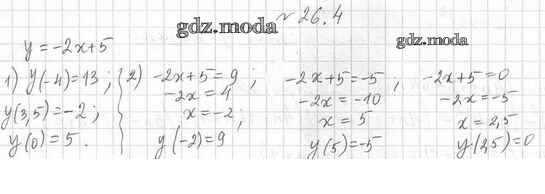 № 26.4
gdz.moda
gdz.moda
y = -2x+5
1) y(-4)=13;
y(3,5)=-2;
y(0)=5.
2) -2x+5=9;
-2x=4
x=-2;
y(-2)=9
-2x+5=-5;
-2x=-10
x=5
y(5)=-5
-2x+5=0
-2x=-5
x=2,5
y(2,5)=0